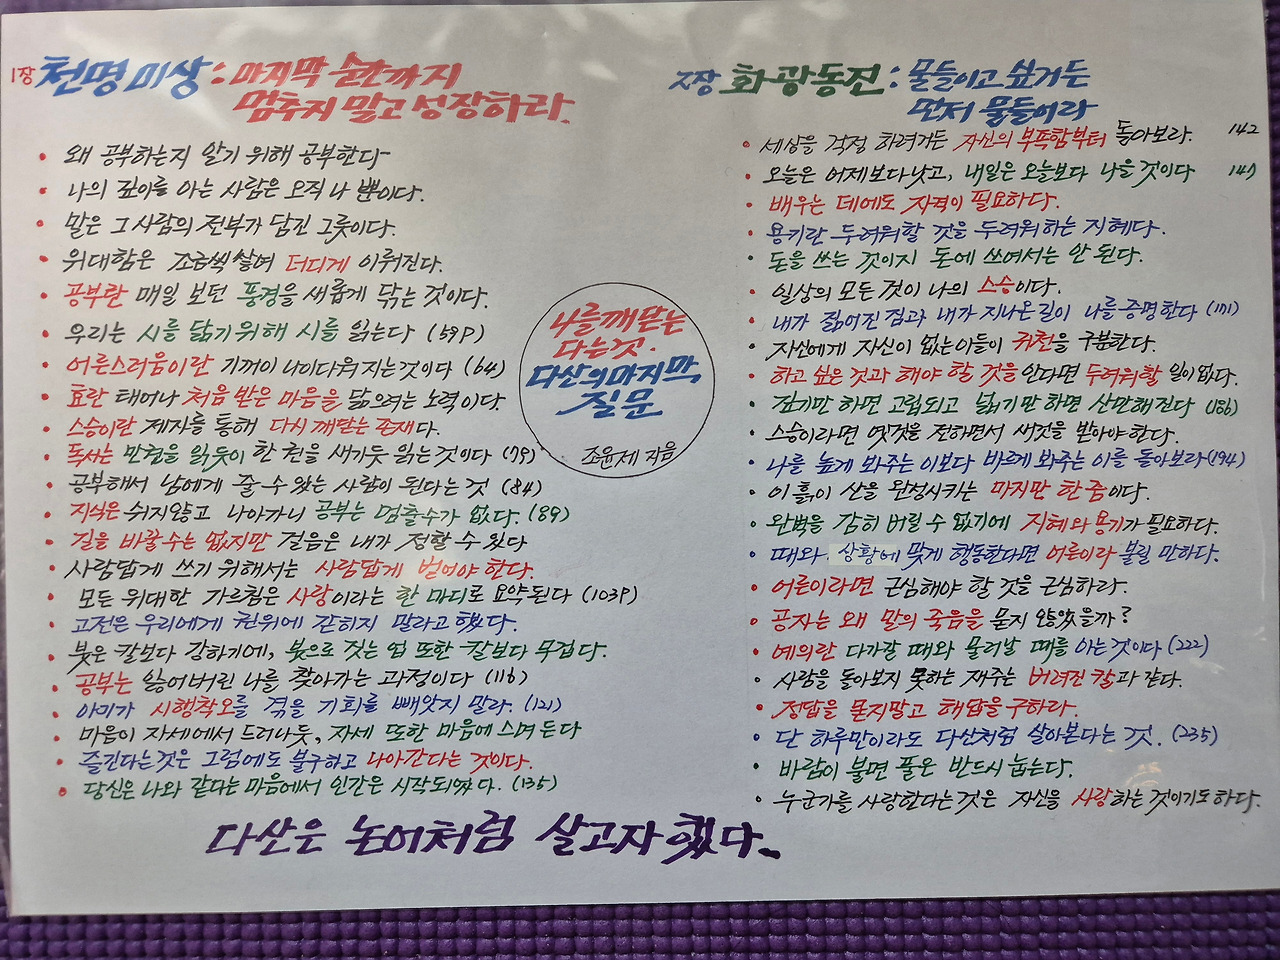 1장 천명미상 : 마지막 순간까지
멈추지 말고 성장하라.
• 왜 공부하는지 알기 위해 공부한다
• 나의 깊이를 아는 사람은 오직 나 뿐이다.
• 말은 그 사람의 전부가 담긴 그릇이다.
• 위대함은 조금씩 쌓여 더디게 이뤄진다.
• 공부란 매일 보던 풍경을 새롭게 닦는 것이다.
• 우리는 시를 닮기 위해 시를 읽는다 (59P)
• 어른스러움이란 기꺼이 나이다워지는 것이다 (64)
• 효란 태어나 처음 받은 마음을 닮으려는 노력이다.
• 스승이란 제자를 통해 다시 깨닫는 존재다.
• 독서는 만권을 읽듯이 한 권을 새기듯 읽는 것이다 (79)
• 공부해서 남에게 줄 수 있는 사람이 된다는 것 (84)
• 지식은 쉬지않고 나아가니 공부는 멈출수가 없다. (89)
• 길을 바랄 수는 없지만 걸음은 내가 정할 수 있다
• 사람답게 쓰기 위해서는 사람답게 벌어야 한다.
• 모든 위대한 가르침은 사랑이라는 한 마디로 요약된다 (103P)
• 고전은 우리에게 권위에 갇히지 말라고 했다.
• 붓은 칼보다 강하기에, 붓으로 짓는 업 또한 칼보다 무겁다.
• 공부는 잃어버린 나를 찾아가는 과정이다 (116)
• 아이가 시행착오를 겪을 기회를 빼앗지 말라. (121)
• 마음이 자세에서 드러나듯, 자세 또한 마음에 스며든다
• 즐긴다는 것은 그럼에도 불구하고 나아간다는 것이다.
• 당신은 나와 같다는 마음에서 인간은 시작되었다. (135)
나를 깨닫는
다는 것.
다산의 마지막
질문
조윤제 지음
2장 화광동진 : 물들이고 싶거든
먼저 물들이라
• 세상을 걱정 하려거든 자신의 부족함부터 돌아보라. 142
• 오늘은 어제보다 낫고, 내일은 오늘보다 나을 것이다 147
• 배우는 데에도 자격이 필요하다.
• 용기란 두려워할 것을 두려워하는 지혜다.
• 돈을 쓰는 것이지 돈에 쓰여서는 안 된다.
• 일상의 모든 것이 나의 스승이다.
• 내가 짊어진 짐과 내가 지나온 길이 나를 증명한다 (171)
• 자신에게 자신이 없는 이들이 귀천을 구분한다.
• 하고 싶은 것과 해야 할 것을 안다면 두려워할 일이 없다.
• 깊기만 하면 고립되고 넓기만 하면 산만해진다 (186)
• 스승이라면 옛것을 전하면서 새것을 받아야 한다.
• 나를 높게 봐주는 이보다 바르게 봐주는 이를 돌아보라 (194)
• 이 흙이 산을 완성시키는 마지막 한 줌이다.
• 완벽을 감히 버릴 수 없기에 지혜와 용기가 필요하다.
• 때와 상황에 맞게 행동한다면 어른이라 불릴 만하다.
• 어른이라면 근심해야 할 것을 근심하라.
• 공자는 왜 말의 죽음을 묻지 않았을까?
• 예의란 다가갈 때와 물러날 때를 아는 것이다 (222)
• 사람을 돌아보지 못하는 재주는 버려진 칼과 같다.
• 정답을 묻지말고 해답을 구하라.
• 단 하루만이라도 다산처럼 살아본다는 것. (235)
• 바람이 불면 풀은 반드시 눕는다.
• 누군가를 사랑한다는 것은 자신을 사랑하는 것이기도 하다.
다산은 논어처럼 살고자 했다.